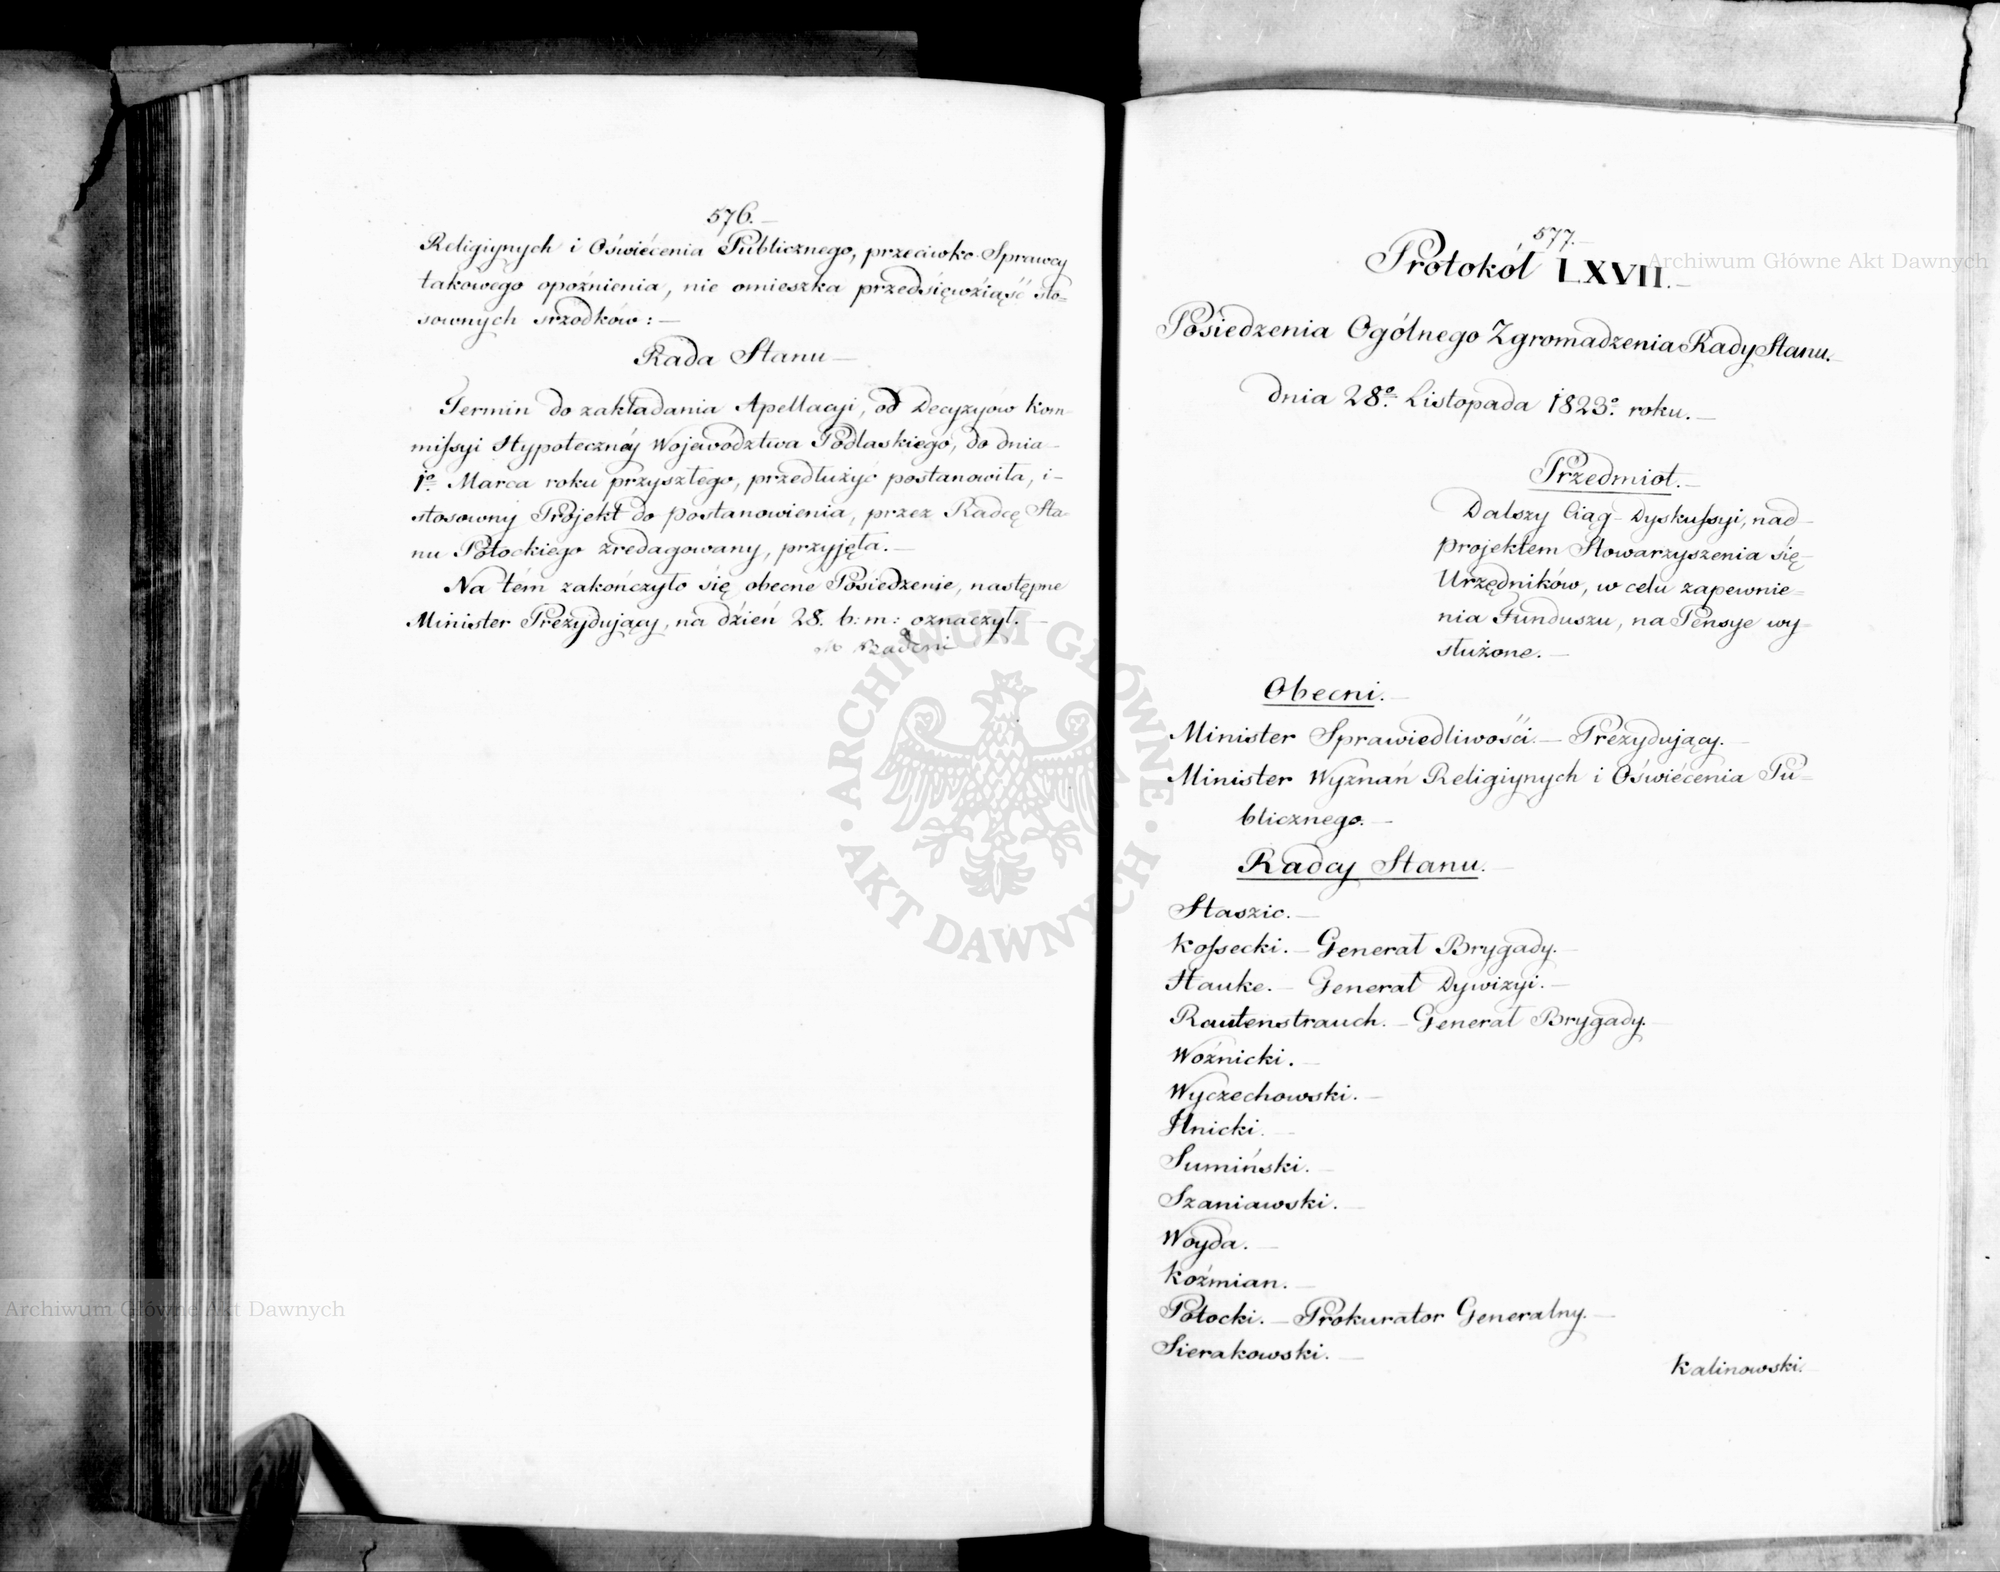 576.
Religiynych i Oświécenia Publicznego, przeciwko Sprawcy
takowego opóźnienia, nie omieszka przedsięwziąść sto=
sownych srzodków: —
Rada Stanu —
Termin do zakładania Apellacyi, od Decyzyów Kom=
missyi Hypotecznéj Województwa Podlaskiego, do dnia —
1º Marca roku przyszłego, przedłużyć postanowiła, i —
stosowny Projekt do postanowienia, przez Radcę Sta=
nu Potockiego zredagowany, przyjęła. —
Na tém zakończyło się obecne Posiedzenie, następne
Minister Prezydujący, na dzień 28. b: m: oznaczył. —
M Badeni
577.
Protokół LXVII. —
Posiedzenia Ogólnego Zgromadzenia Rady Stanu. —
dnia 28º Listopada 1823º roku. —
Przedmiot. —
Dalszy Ciąg Dyskussyi, nad
projektem Stowarzyszenia się
Urzędników, w celu zapewnie=
nia Funduszu, na Pensye wy=
służone. —
Obecni. —
Minister Sprawiedliwości. — Prezydujący. —
Minister Wyznań Religiynych i Oświécenia Pu=
blicznego. —
Radcy Stanu. —
Staszic. —
Kossecki. — Generał Brygady. —
Hauke. — Generał Dywizyi. —
Rautenstrauch. — Generał Brygady. —
Woźnicki. —
Wyczechowski. —
Lnicki. —
Sumiński. —
Szaniawski. —
Woyda. —
Koźmian. —
Potocki. — Prokurator Generalny. —
Sierakowski. —
Kalinowski.
Archiwum Główne Akt Dawnych
Archiwum Główne Akt Dawnych
ARCHIWUM GŁÓWNE AKT DAWNYCH